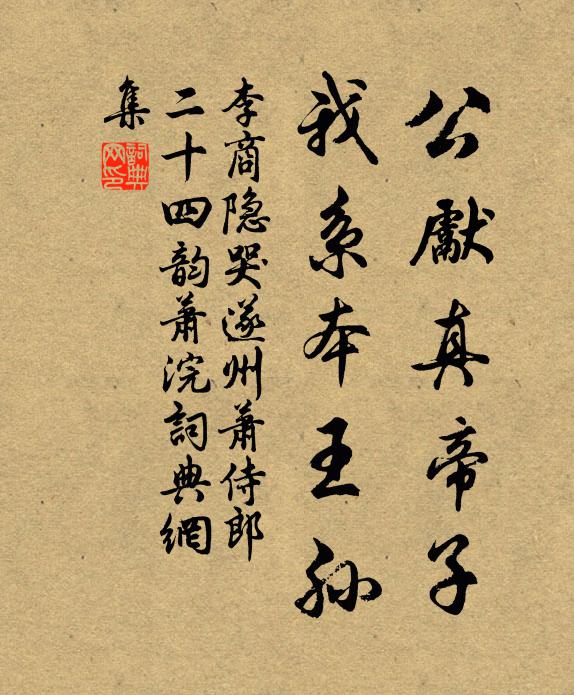 公獻真帝子
我系本王孙
李商隐哭遂州蕭侍郎
二十四韵蕭浣詞典網
集
詞典
网印